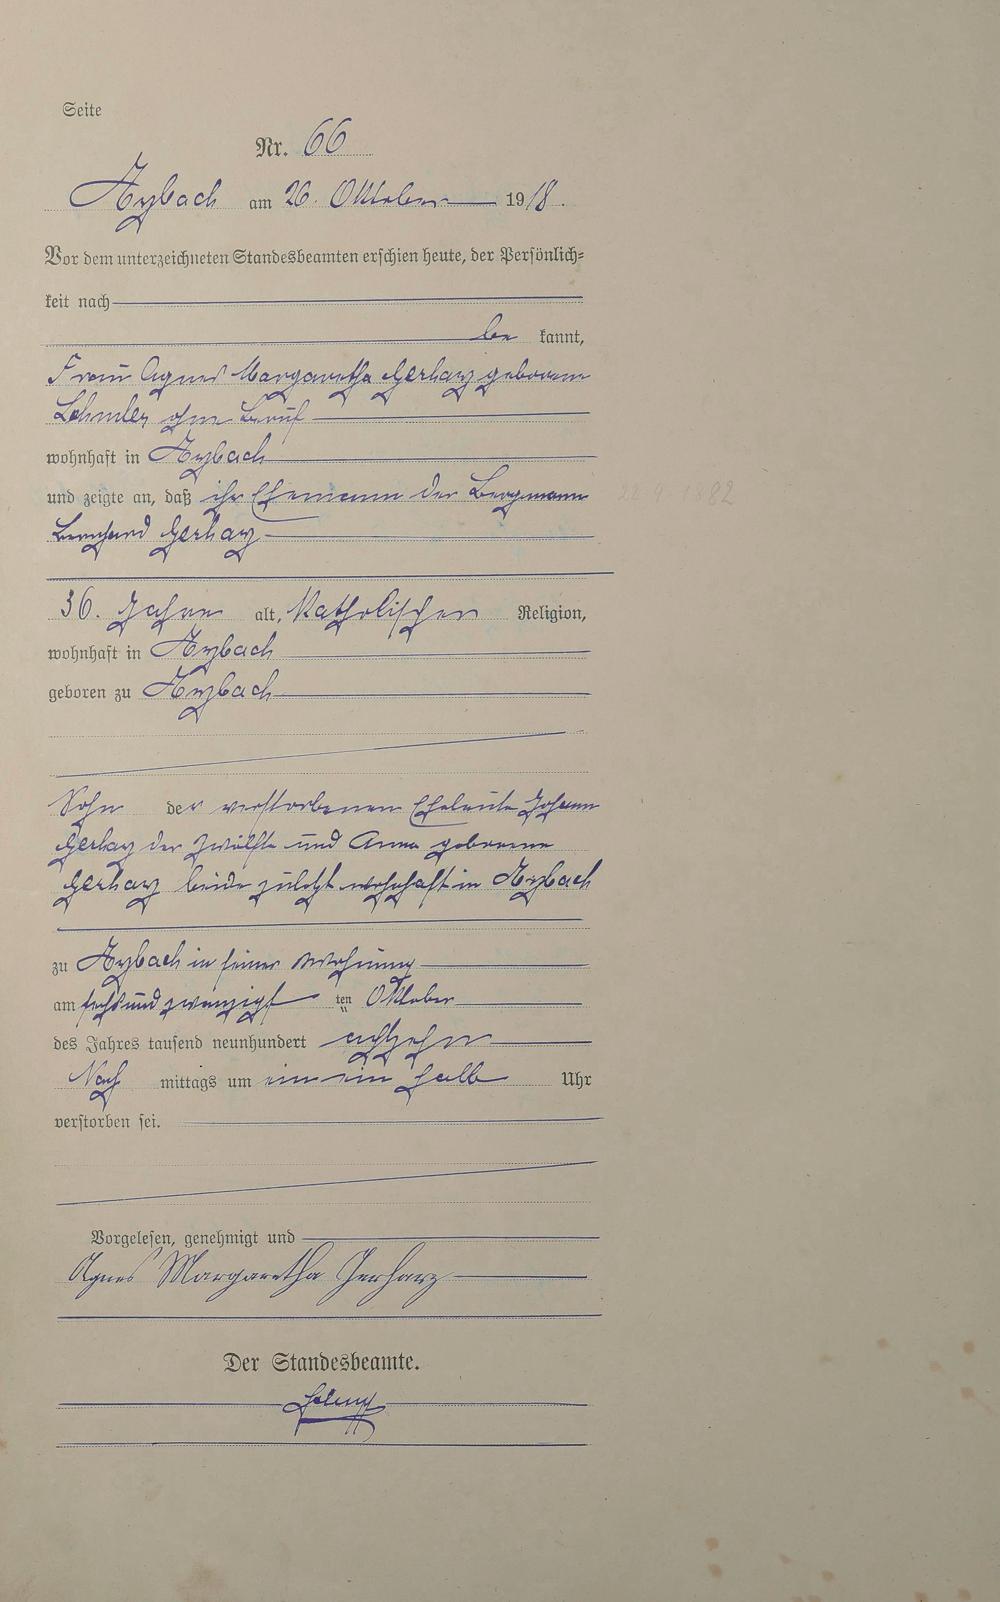 Seite
Nr. 66
Arzbach am 26. Oktober 1918.
Vor dem unterzeichneten Standesbeamten erschien heute, der Persönlich=
keit nach
be kannt,
Frau Agnes Margaretha Gerharz geborene
ohne Beruf
wohnhaft in Arzbach
und zeigte an, daß ihr Ehemann der Bergmann 1882
Bernhard Gerharz
36. Jahre alt, Katholischer Religion,
wohnhaft in Arzbach
geboren zu Arzbach
Sohn der verstorbenen Eheleute Johann
Gerharz der Zwölfte und Anna geborene
Gerharz beide zuletzt wohnhaft in Arzbach
zu Arzbach in seiner Wohnung
am sechsundzwanzigsten Oktober
des Jahres tausend neunhundert achtzehn
Nach mittags um ein ein halb Uhr
verstorben sei.
Vorgelesen, genehmigt und
Agnes Margaretha Gerharz
Der Standesbeamte.